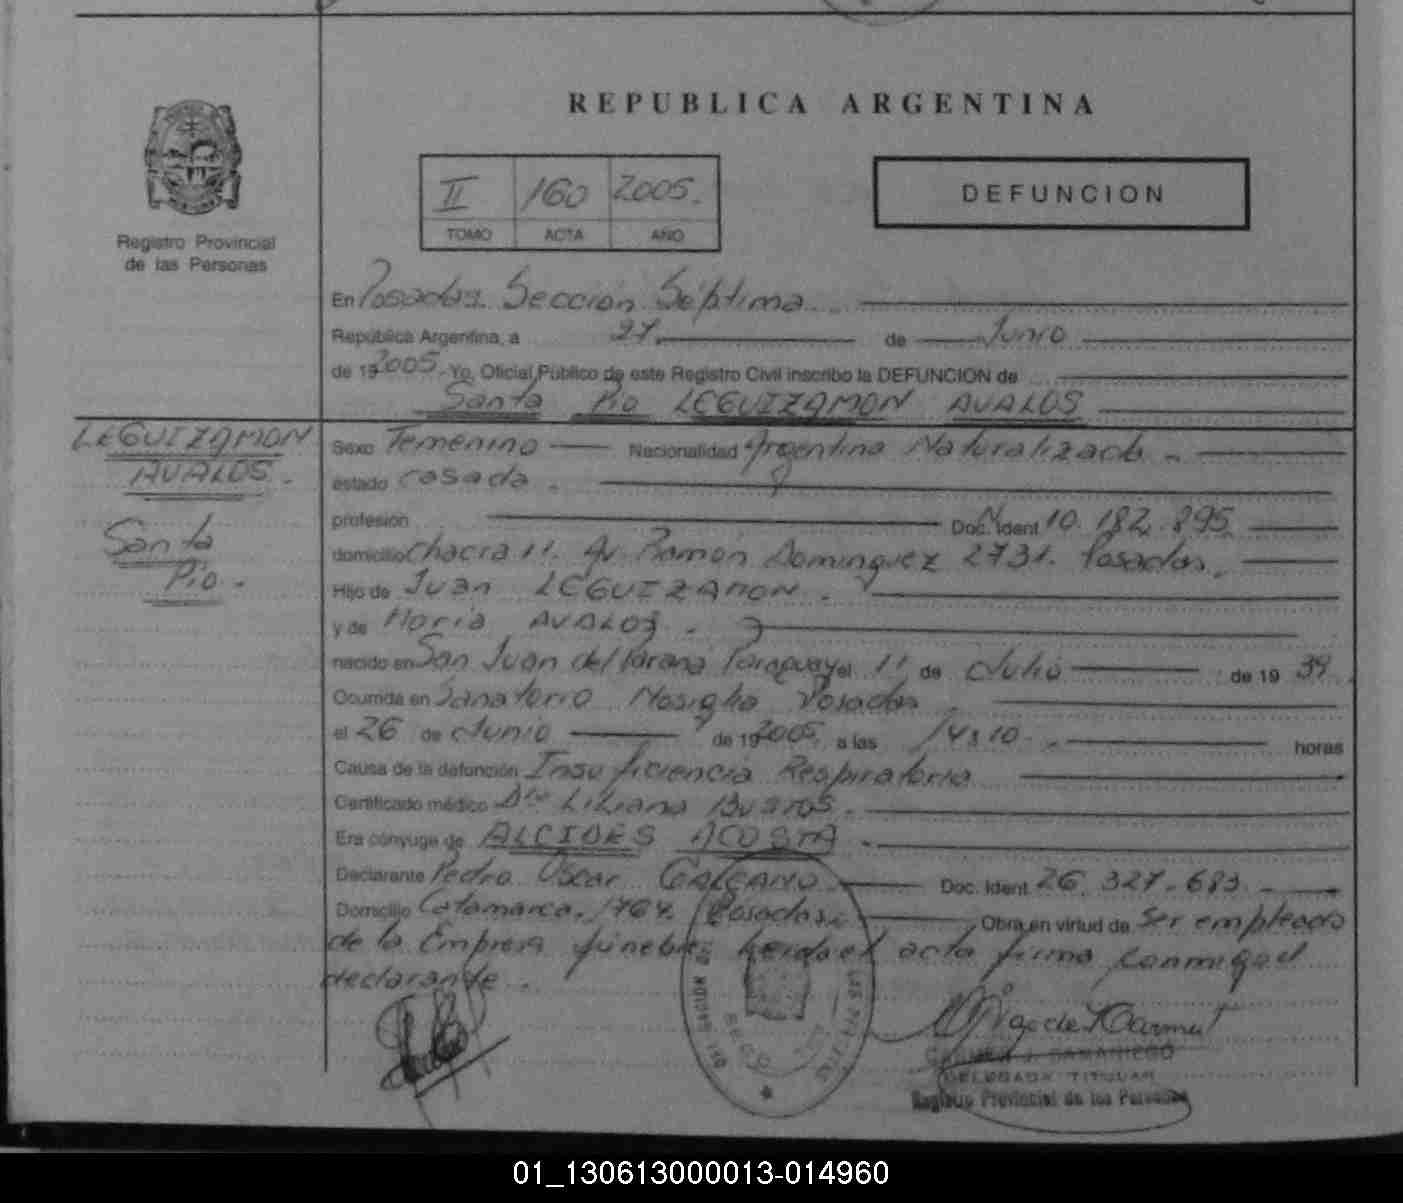 REPUBLICA ARGENTINA
II 160 2005.
TOMO ACTA AÑO
DEFUNCION
Registro Provincial
de las Personas
En Posadas. Sección Séptima
República Argentina, a 27. de Junio
de 19 2005. Yo, Oficial Público de este Registro Civil inscribo la DEFUNCION de
Santa Pio LEGUIZAMON AVALOS
LEGUIZAMON
AVALOS.
Santa
Pio.
Sexo Femenino Nacionalidad Argentina Naturalizada.
estado casada.
profesión Doc. Ident. 10.182.895.
domicilio Chacra 11. Av. Ramon Dominguez 2731. Posadas.
Hijo de Juan LEGUIZAMON.
y de Maria AVALOS.
nacido en San Juan del Paraná Paraguay el 11 de Julio de 19 39.
Ocurrida en Sanatorio Nosiglia Posadas
el 26 de Junio de 19 2005. a las 14:10. horas
Causa de la defunción Insuficiencia Respiratoria
Certificado médico Dra Liliana BUSTOS.
Era cónyuge de ALCIDES ACOSTA
Declarante Pedro Oscar GALEANO Doc. Ident. 26.327.683.
Domicilio Catamarca. 1764. Posadas. Obra en virtud de Ser empleado
de la Empresa fúnebre leida el acta firma conmigo el
declarante.
CARMEN J. SAMANIEGO
DELEGADA TITULAR
Registro Provincial de las Personas
01_130613000013-014960